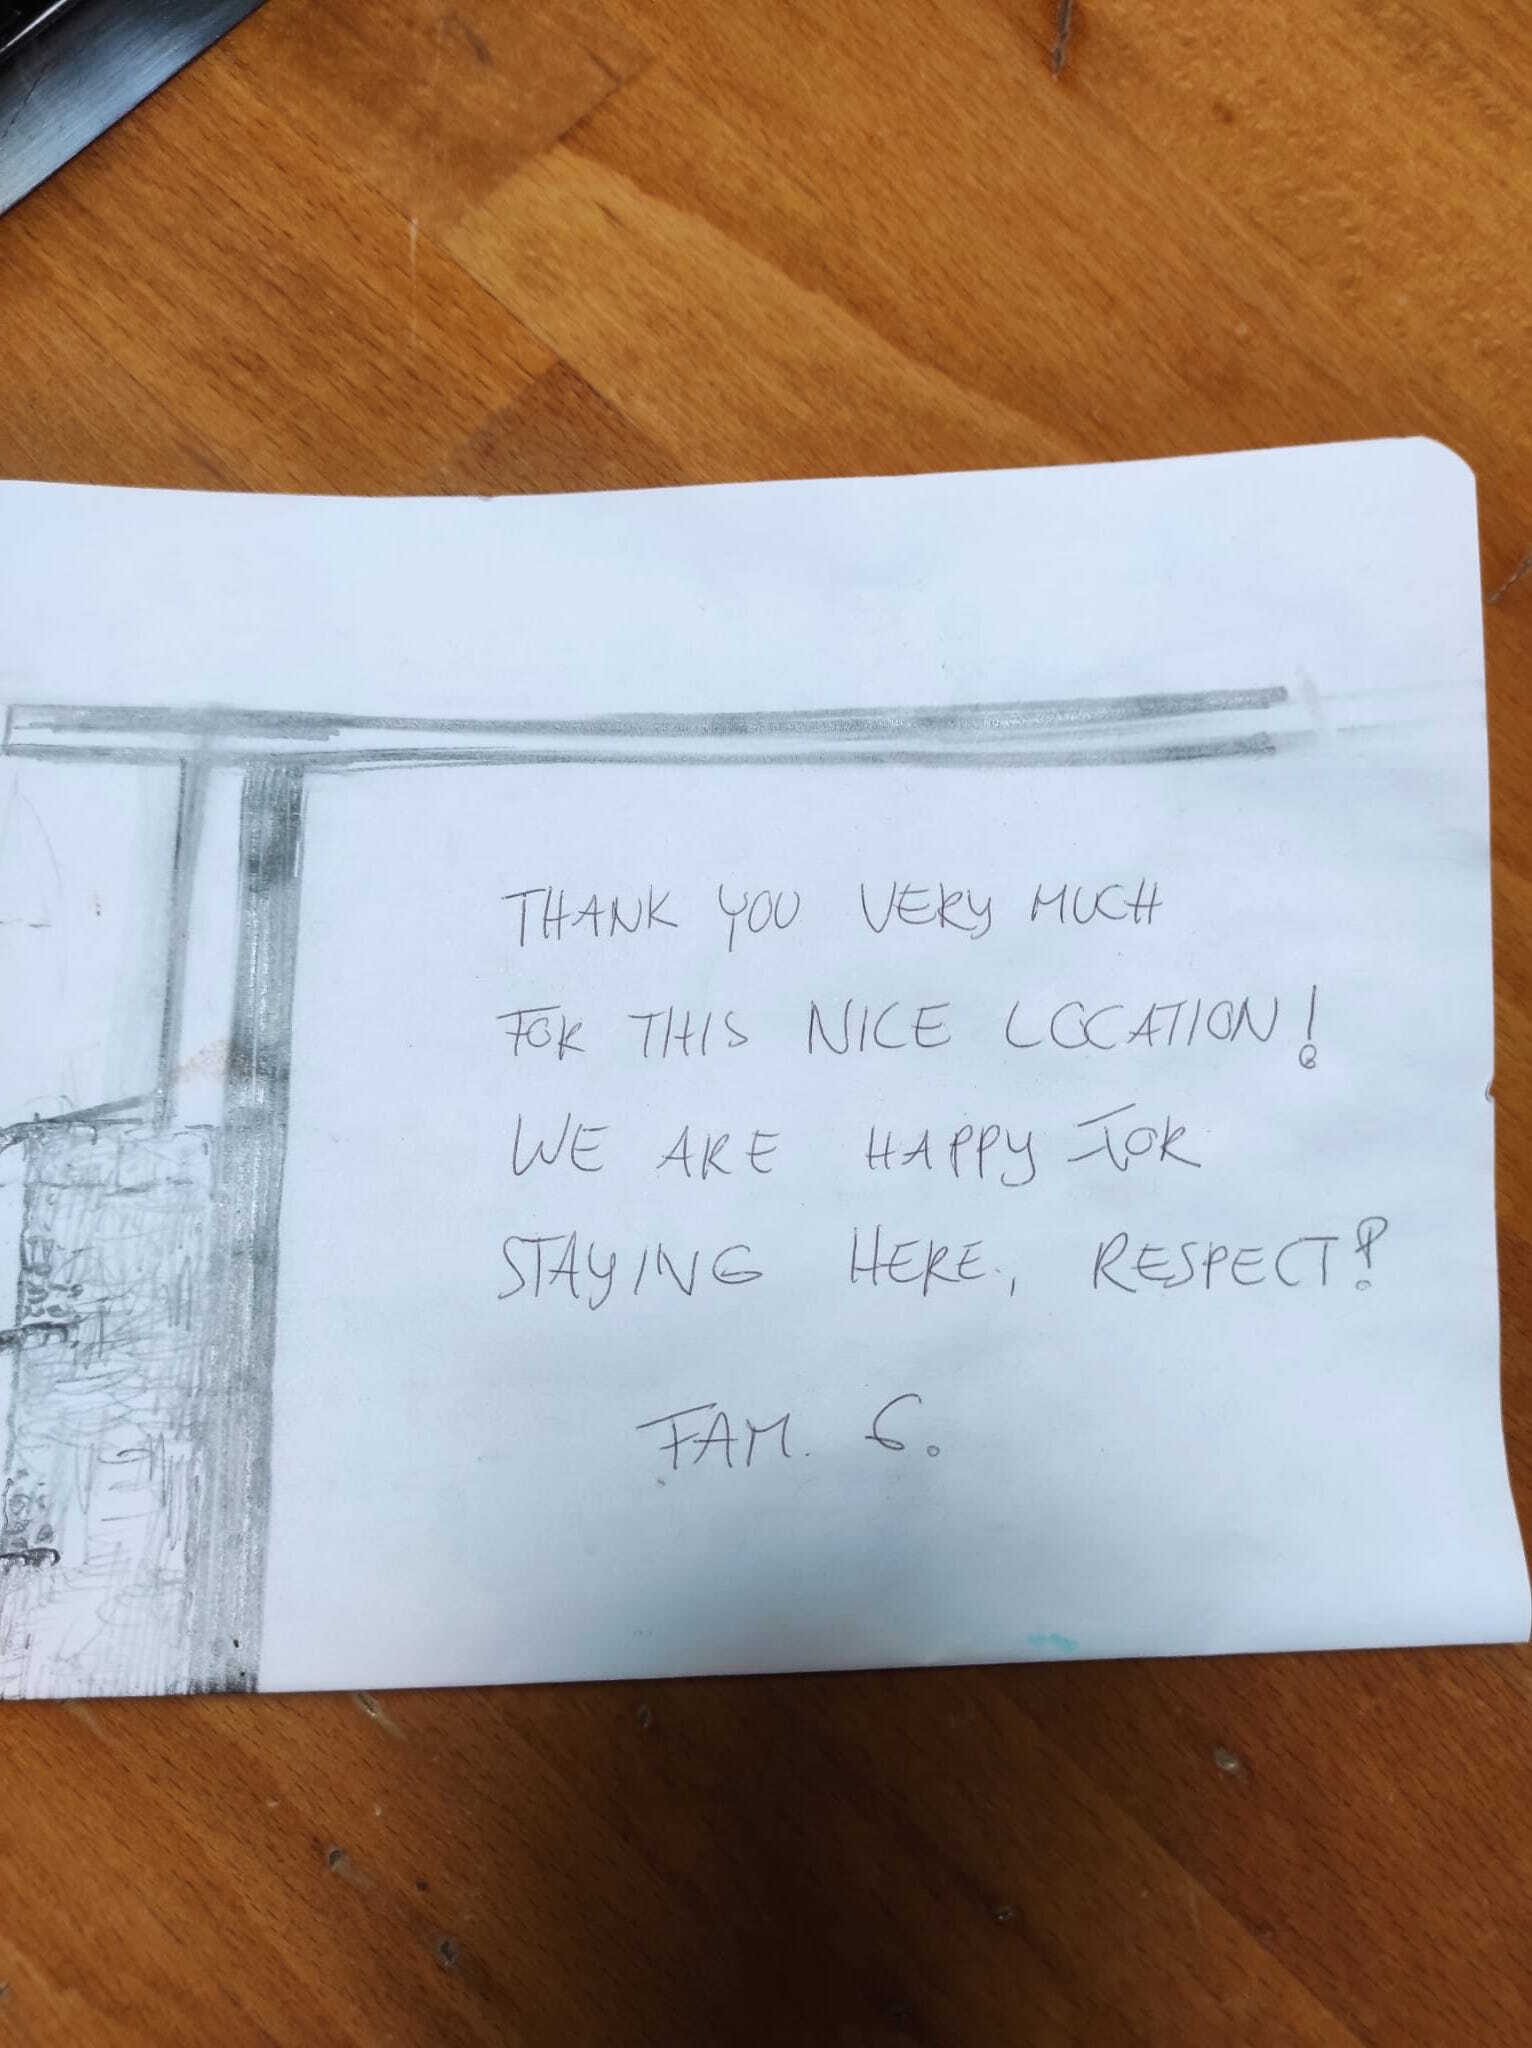 THANK YOU VERY MUCH
FOR THIS NICE LOCATION!
WE ARE HAPPY FOR
STAYING HERE, RESPECT!
FAM. G.